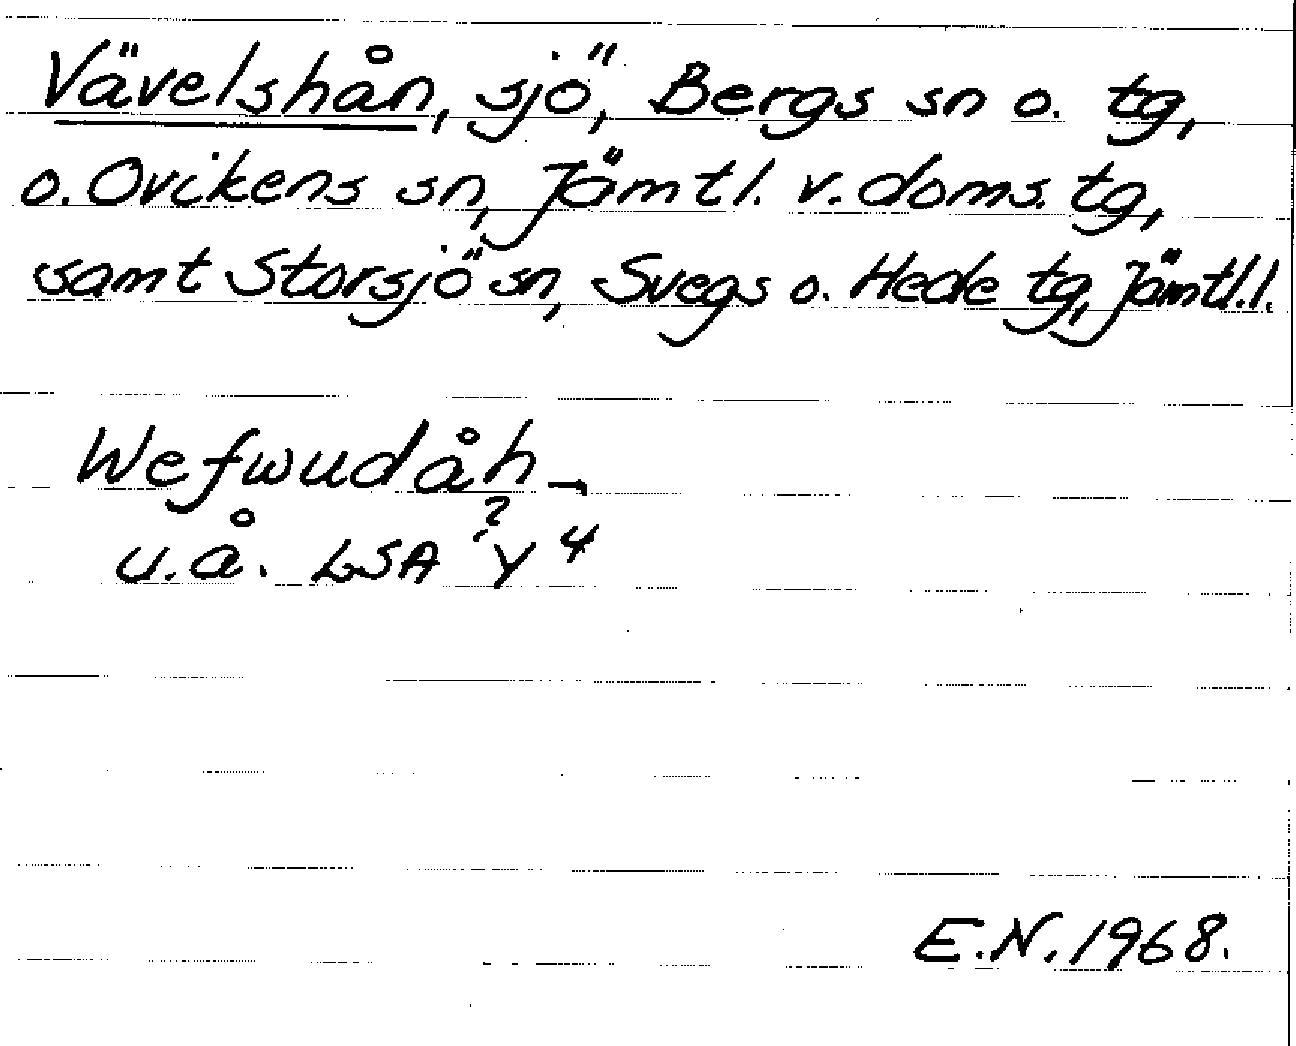 Vävelshån, sjö, Bergs sn o. tg,
o. Ovikens sn, Jämtl. v. doms. tg,
samt Storsjö sn, Svegs o. Hede tg, Jämtl.l.
Wefwudåh –
?
u.å. LSA Y 4
E.N. 1968.